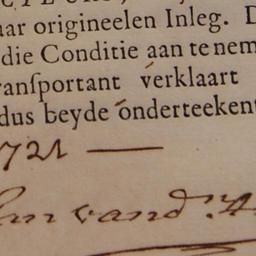 aar origineelen Inleg. D
die Conditie aan te nem
ranſportant verklaart
dus beyde onderteeken
1721
vand